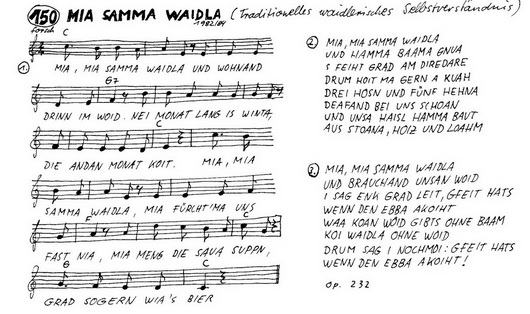 150 MIA SAMMA WAIDLA (Traditionelles waidlerisches Selbstverständnis)
forsch C 1982/84
1. MIA, MIA SAMMA WAIDLA UND WOHNAND
G7
DRINN IM WOID. NEI MONAT LANG IS WINTA,
C
DIE ANDAN MONAT KOIT. MIA, MIA
SAMMA WAIDLA, MIA FÜRCHT'MA UNS
F C
FAST NIA, MIA MENG DIE SAUA SUPPN,
G C
GRAD SOGERN WIA'S BIER
2. MIA, MIA SAMMA WAIDLA
UND HAMMA BAAMA GNUA
S FEIHT GRAD AM DIREDARE
DRUM HOIT MA GERN A KUAH
DREI HOSN UND FÜNF HEHNA
DEAFAND BEI UNS SCHOAN
UND UNSA HAISL HAMMA BAUT
AUS STOANA, HOIZ UND LOAHM
3. MIA, MIA SAMMA WAIDLA
UND BRAUCHAND UNSAN WOID
I SAG ENK GRAD LEIT, GFEIT HATS
WENN DEN EBBA AKOIHT
WAA KOAN WOID GIBTS OHNE BAAM
KOI WAIDLA OHNE WOID
DRUM SAG I NOCHMOI: GFEIT HATS
WENN DEN EBBA AKOIHT!
op. 232